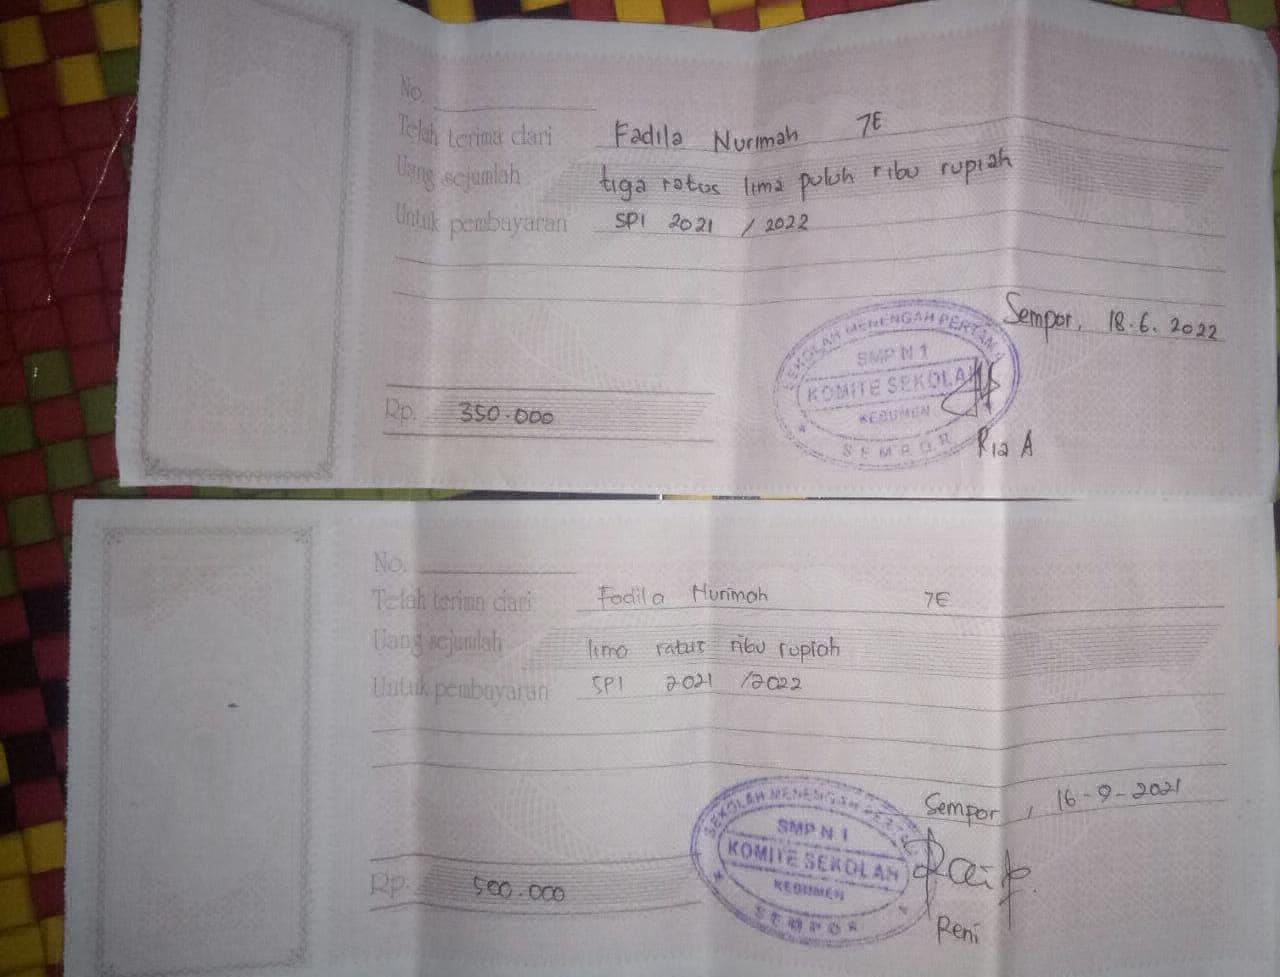 No.
Telah terima dari Fadila Nurimah 7E
Uang sejumlah tiga ratus lima puluh ribu rupiah
Untuk pembayaran SPI 2021 / 2022
Sempor, 18.6.2022
SEKOLAH MENENGAH PERTAMA
SMP N 1
KOMITE SEKOLAH
KEBUMEN
SEMPOR
Rp. 350.000
Ria A
No.
Telah terima dari Fadila Nurimah 7E
Uang sejumlah lima ratus ribu rupiah
Untuk pembayaran SPI 2021 /2022
Sempor, 16-9-2021
SEKOLAH MENENGAH PERTAMA
SMP N 1
KOMITE SEKOLAH
KEBUMEN
SEMPOR
Rp. 500.000
Reni